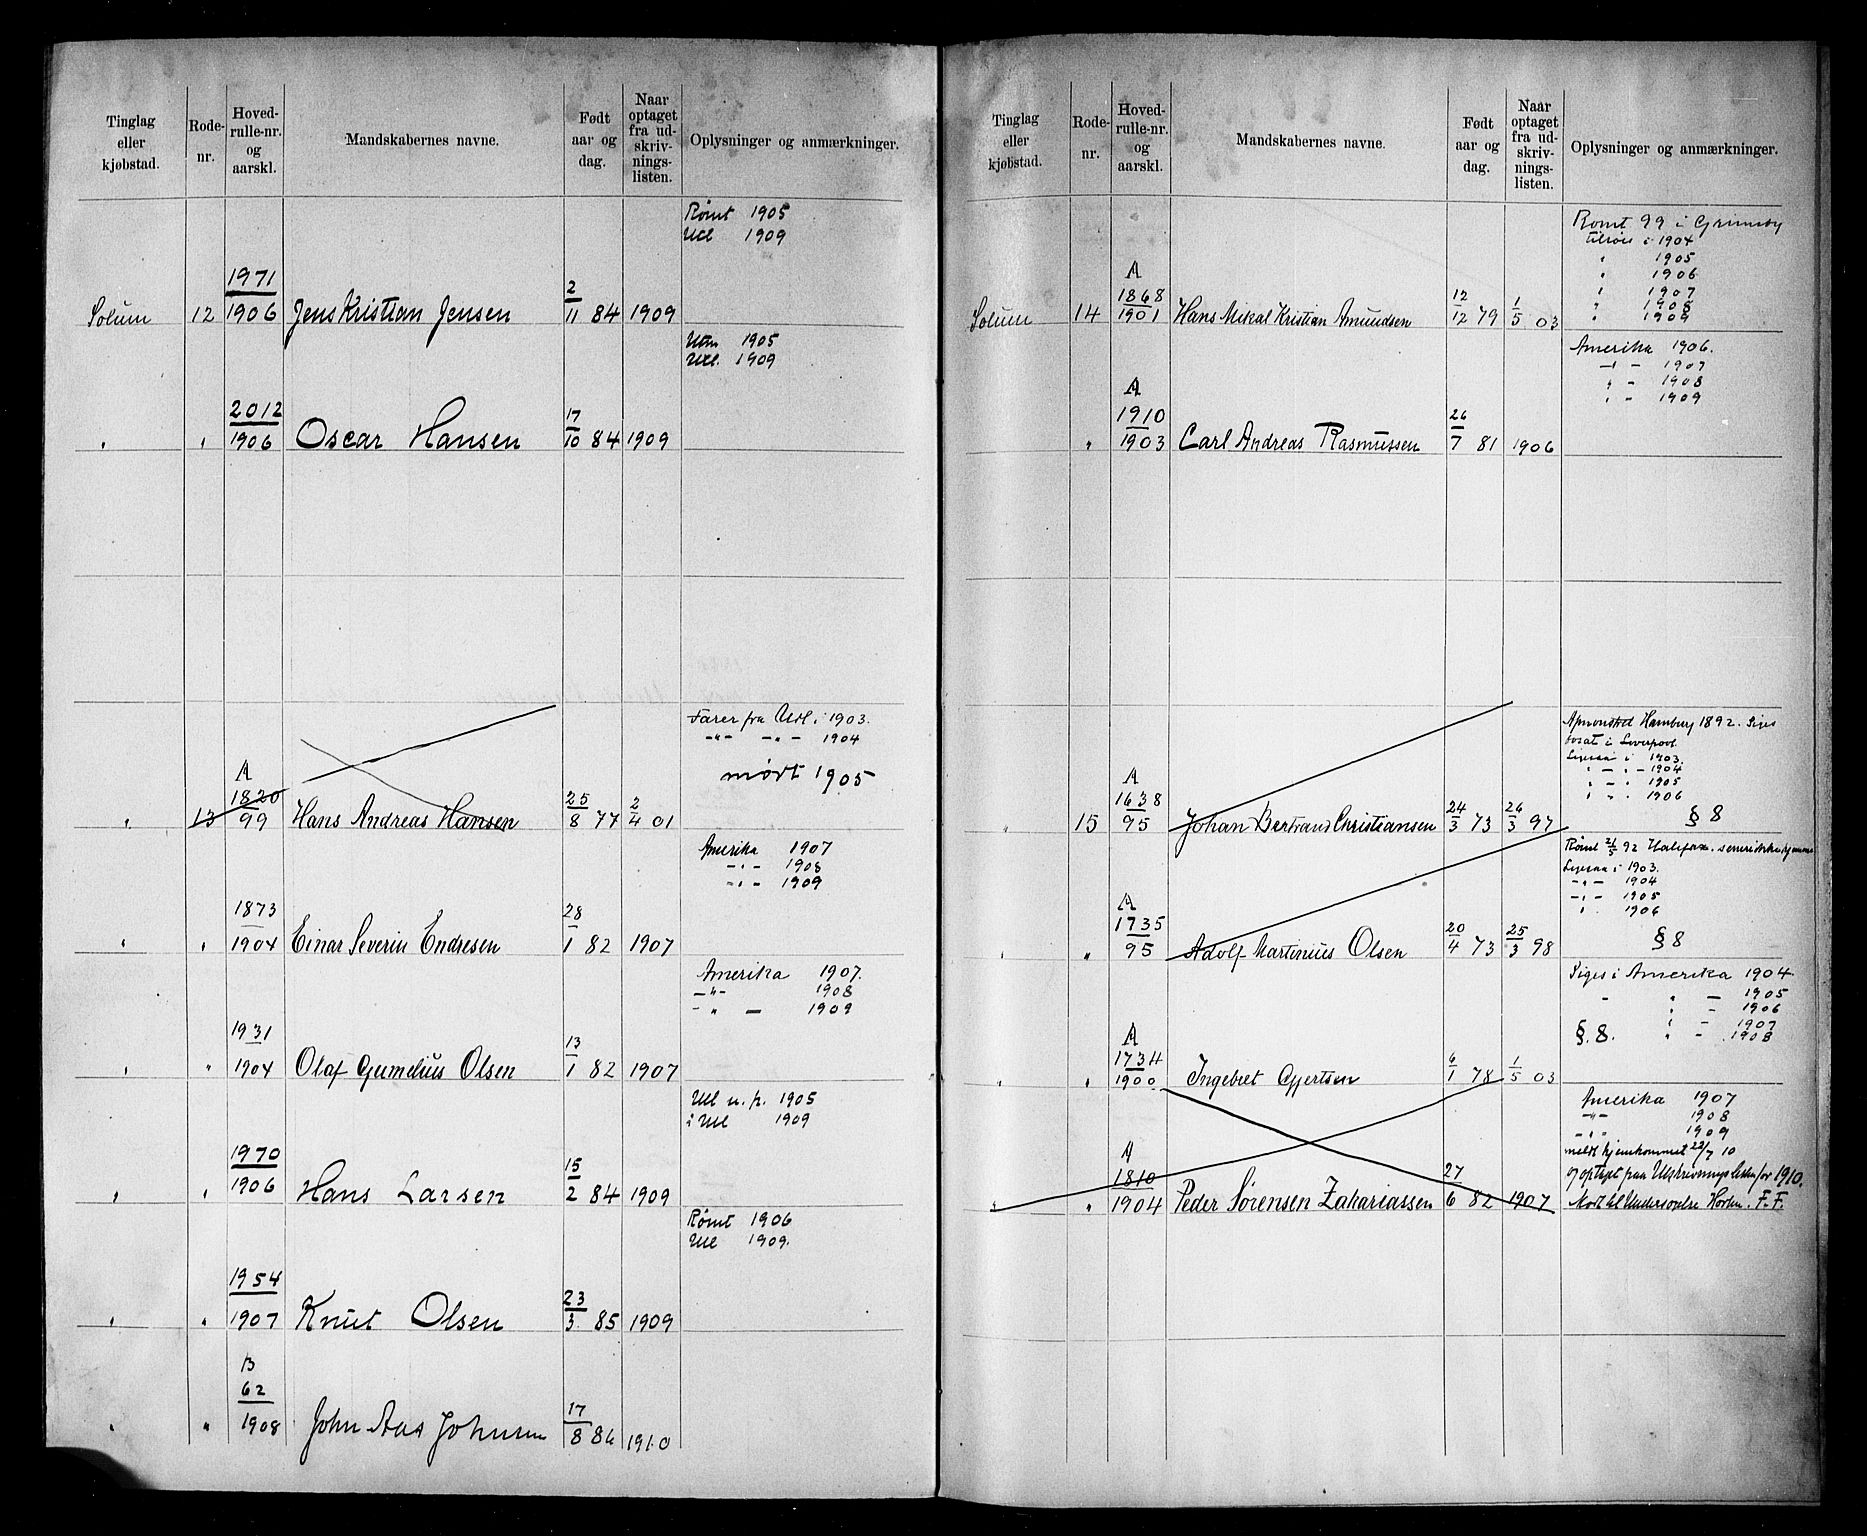 Tinglag
eller
kjøbstad.
Rode-
nr.
Hoved-
rulle-nr.
og
aarskl.
Mandskabernes navne.
Født
aar og
dag.
Naar
optaget
fra ud-
skriv-
nings-
listen.
Oplysninger og anmærkninger.
Rømt 1905
Utl 1909
1971
Solum 12 1906 Jens Kristian Jensen 2/11 84 1909
1905
Utl. 1909
2012
" " 1906 Oscar Hansen 17/10 84 1909
Farer fra Utl. i 1903.
-"- -"- 1904
mørt 1905
A
1820
" 13 99 Hans Andreas Hansen 25/8 77 2/4 01
Amerika 1907
-"- 1908
-"- 1909
1873
" " 1904 Einar Severin Endresen 28/1 82 1907
Amerika 1907.
-"- 1908
-"- 1909
1931
" " 1904 Olaf Gumelius Olsen 13/1 82 1907
Utl u. p. 1905
i Utl 1909
1970
" " 1906 Hans Larsen 15/2 84 1909
Rømt 1906
Utl 1909.
1954
" " 1907 Knut Olsen 23/3 85 1909
B
62
" " 1908 John Aas Johnsen 17/8 86 1910
Tinglag
eller
kjøbstad.
Rode-
nr.
Hoved-
rulle-nr.
og
aarskl.
Mandskabernes navne.
Født
aar og
dag.
Naar
optaget
fra ud-
skriv-
nings-
listen.
Oplysninger og anmærkninger.
Romt 99 i Grimsby
tilsøis i 1904
" 1905
" 1906
" 1907
" 1908
" 1909
A
1868
Solum 14 1901 Hans Mikal Kristian Amundsen 12/12 79 1/5 03
Amerika 1906.
-"- 1907
" - 1908
" - 1909
A
1910
" 1903 Carl Andreas Rasmussen 26/7 81 1906
Apmønstret Hamburg 1892. Siges
bosat i Liverpool.
Ligesaa i 1903.
" - " - 1904
" - " - 1905
" - " - 1906
§ 8
A
1638
" 15 95 Johan Bertrand Christiansen 24/3 73 26/3 97
Rømt 21/5 92 Halifax.
Ligesaa i 1903.
-"- 1904
-"- 1905
" 1906
§ 8
A
1735
" " 95 Adolf Martinius Olsen 20/4 73 25/3 98
Siges i Amerika 1904.
- " - 1905
" - 1906
" - 1907
§. 8. " - 1908
A
1734
" " 1900 Ingebret Gjertsen 6/1 78 1/5 03
Amerika 1907
-"- 1908
-"- 1909
meldt hjemkommet 22/7 10
og optaget paa Udskrivningslisten for 1910.
A
1810
" 1904 Peder Sørensen Zakariassen 27/6 82 1907 til Undersøgelse Horten. F. F.